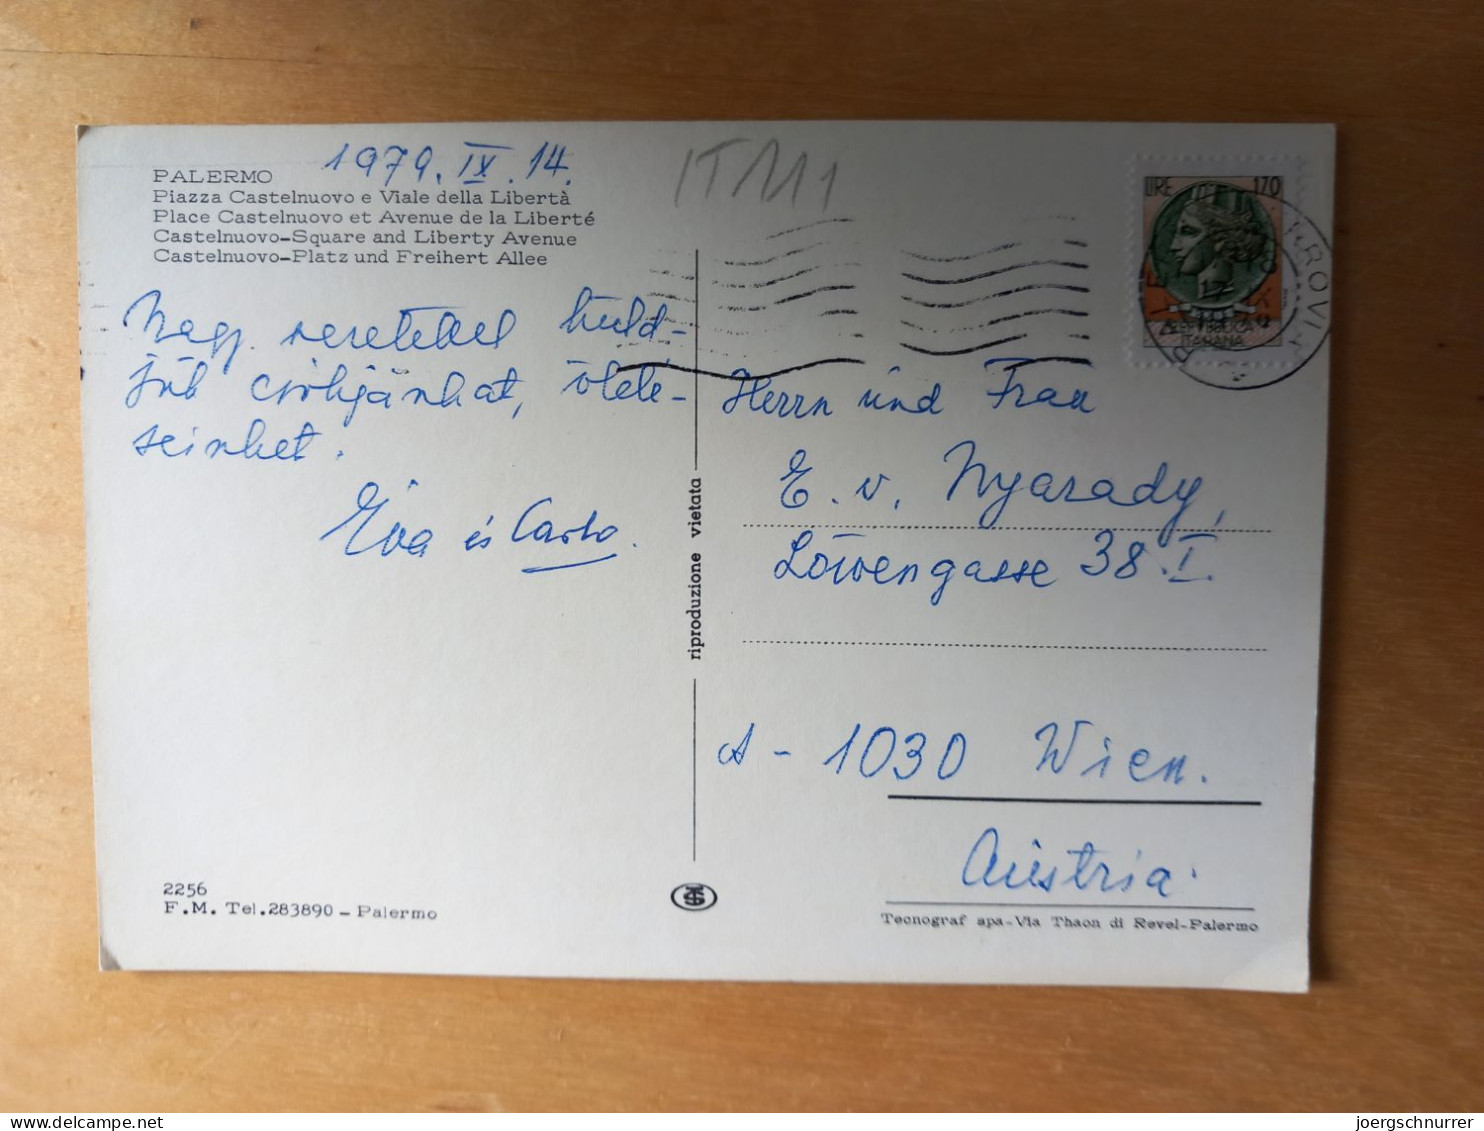 1979. IX. 14.
PALERMO
Piazza Castelnuovo e Viale della Libertà
Place Castelnuovo et Avenue de la Liberté
Castelnuovo-Square and Liberty Avenue
Castelnuovo-Platz und Freihert Allee
Nagy szeretettel küld-
jük csókjainkat, ölelé-
seinket.
Éva és Carlo.
2256
F.M. Tel.283890 - Palermo
riproduzione vietata
LIRE 170
REPUBBLICA
ITALIANA
Herrn und Frau
E. v. Nyarady,
Löwengasse 38. I.
A - 1030 Wien.
Austria.
Tecnograf spa-Via Thaon di Revel-Palermo
joergschnurrer